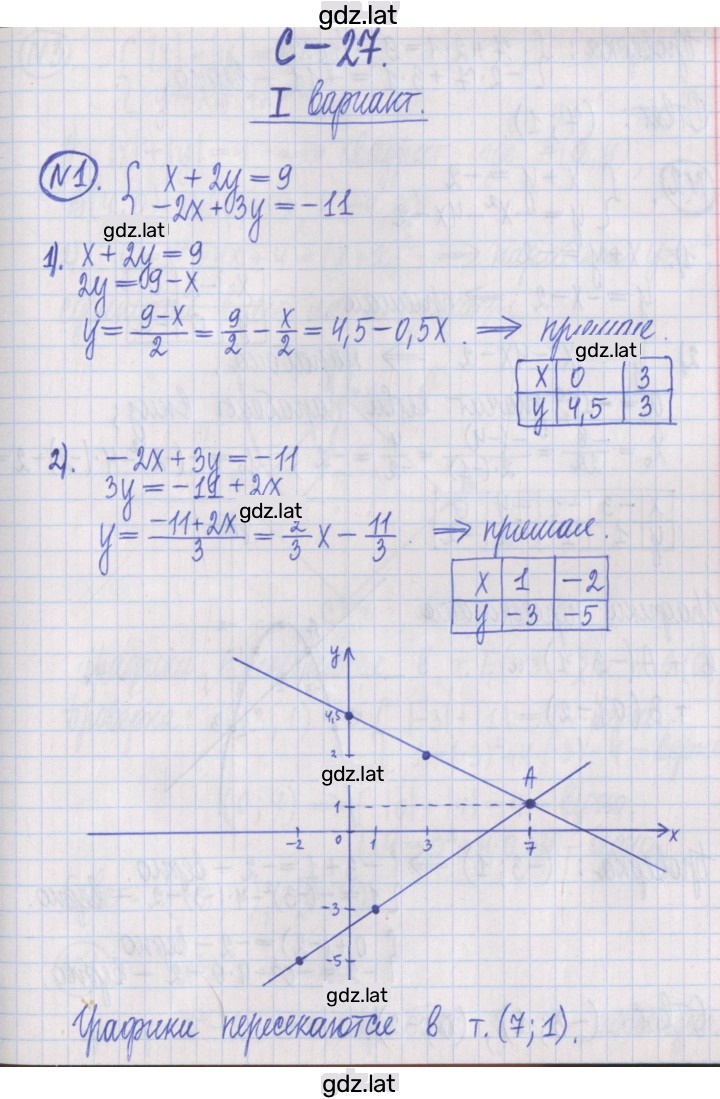 gdz.lat
С – 27.
I вариант.
№1. { x + 2y = 9
-2x + 3y = -11
gdz.lat
1). x + 2y = 9
2y = 9 - x
y = (9-x)/2 = 9/2 - x/2 = 4,5 - 0,5x. ⟹ прямая.
gdz.lat
x 0 3
y 4,5 3
2). -2x + 3y = -11
3y = -11 + 2x
gdz.lat
y = (-11+2x)/3 = 2/3 x - 11/3. ⟹ прямая.
x 1 -2
y -3 -5
y
4,5
gdz.lat
A
1
-2 0 1 3 7 x
-3
-5
gdz.lat
Графики пересекаются в т. (7; 1).
gdz.lat